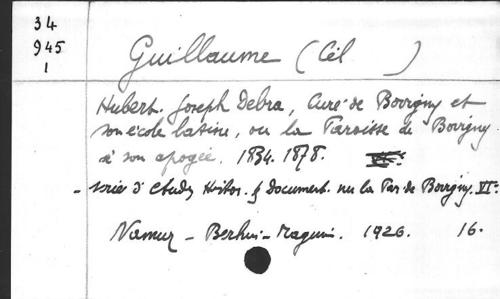 34
945
1
Guillaume (Cél )
Hubert. Joseph Debra, Curé de Bovigny et
son école latine, ou la Paroisse de Bovigny
à son apogée. 1834. 1878.
- série d'Etudes Histor. & Document. sur la Par. de Bovigny. VI.
Namur - Bertrui-Maguin. 1926. 16.